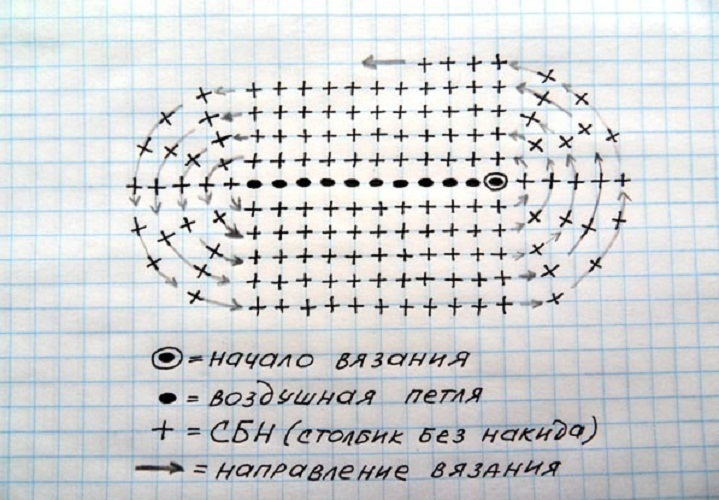 = начало вязания
= воздушная петля
+ = СБН (столбик без накида)
→ = направление вязания